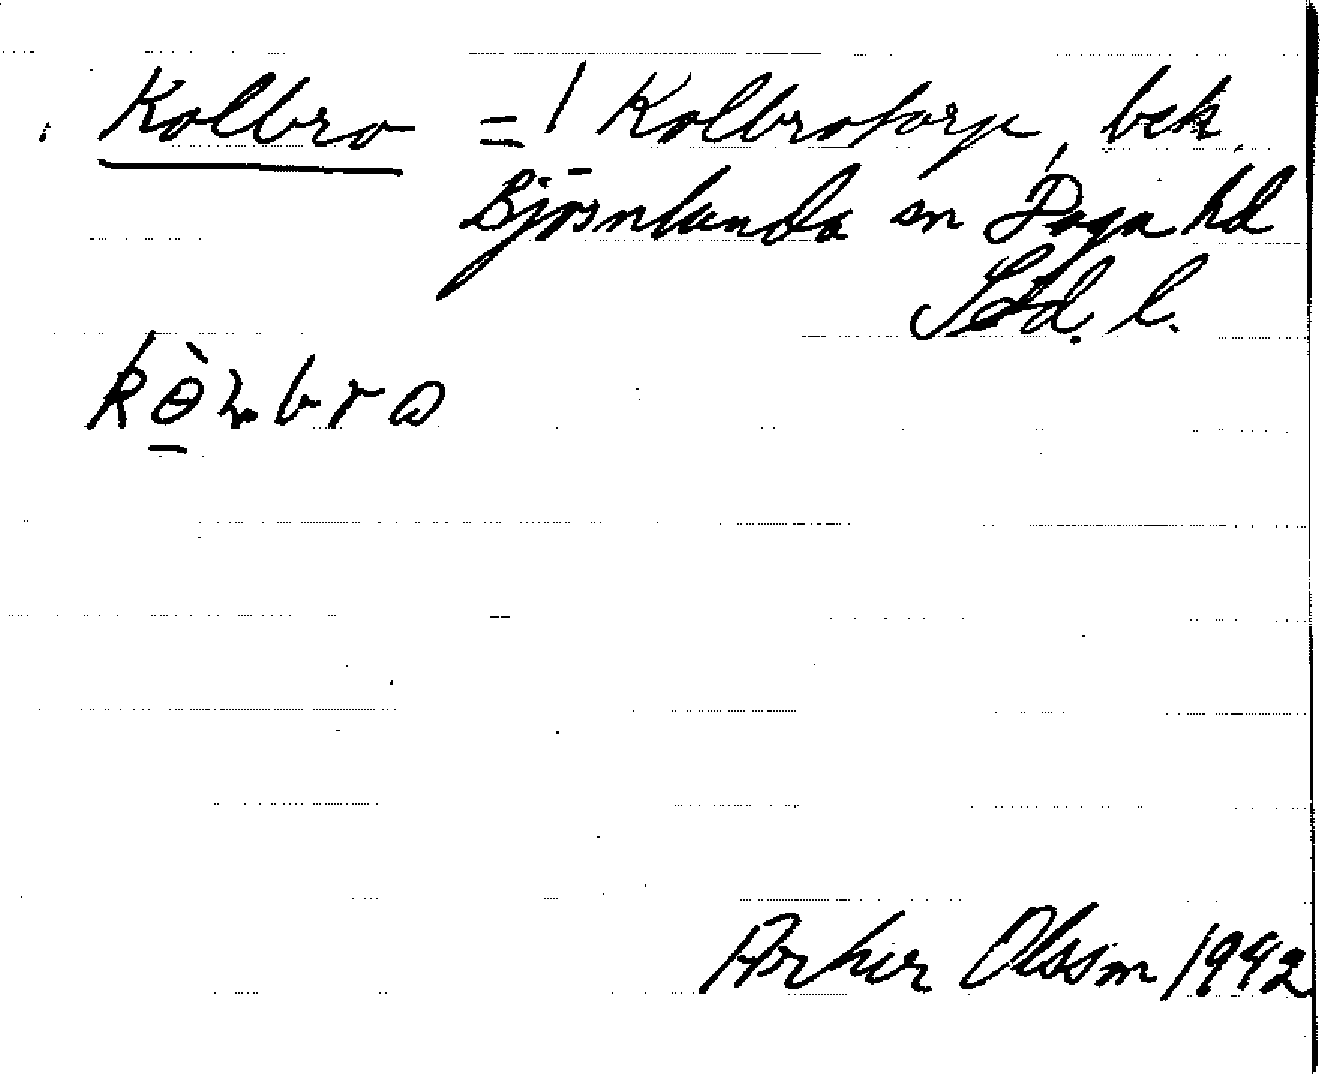 Kolbro = 1 Kolbrotorp, bek.
Björnlunda sn Daga hd
Söd. l.
Arthur Olsson 1942